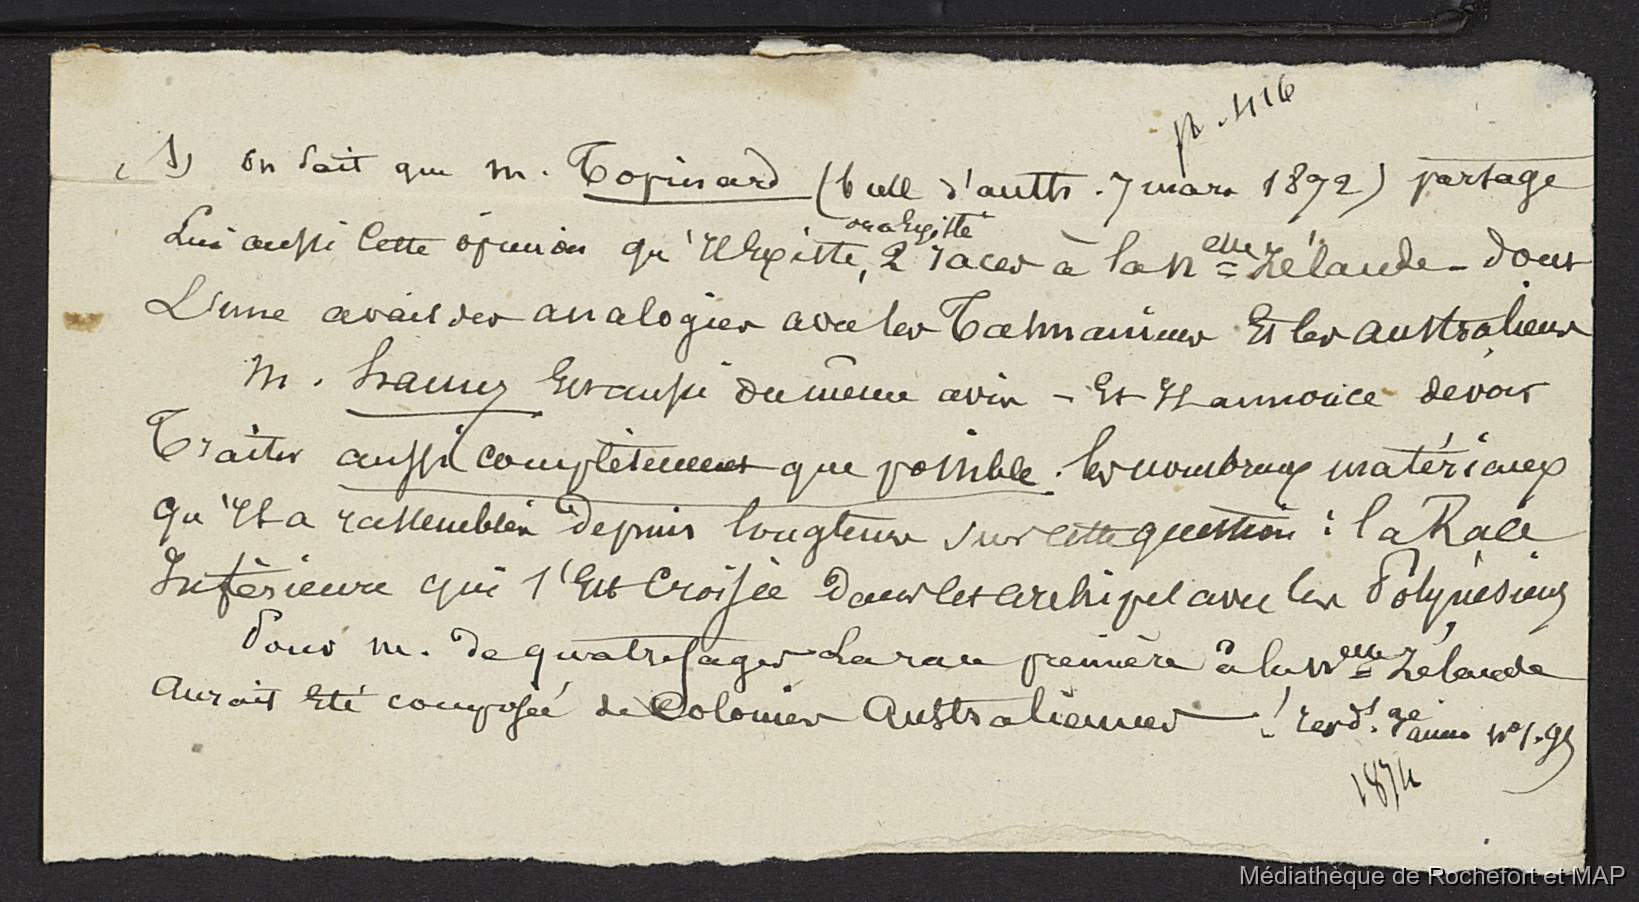 p. 416
(1) on sait que M. Topinard (bull d'anth. 7 mars 1872) partage
lui aussi cette opinion qu'il existe, ou a existé 2 races à la Nelle Zélande - dont
L'une avait des analogies avec les Tasmaniens Et les australiens
M. hamy Est aussi du même avis - Et Il annonce devoir
Traiter aussi complètement que possible. les nombreux matériaux
qu'Il a rassemblés depuis longtems sur cette question : la Race
Inférieure qui s'Est Croisée dans les archipel avec les Polynésiens
Pour M. de quatrefages La race première à la Nelle Zélande
Aurait Eté composée de Colonies Australiennes — !
1874
Médiathèque de Rochefort et MAP